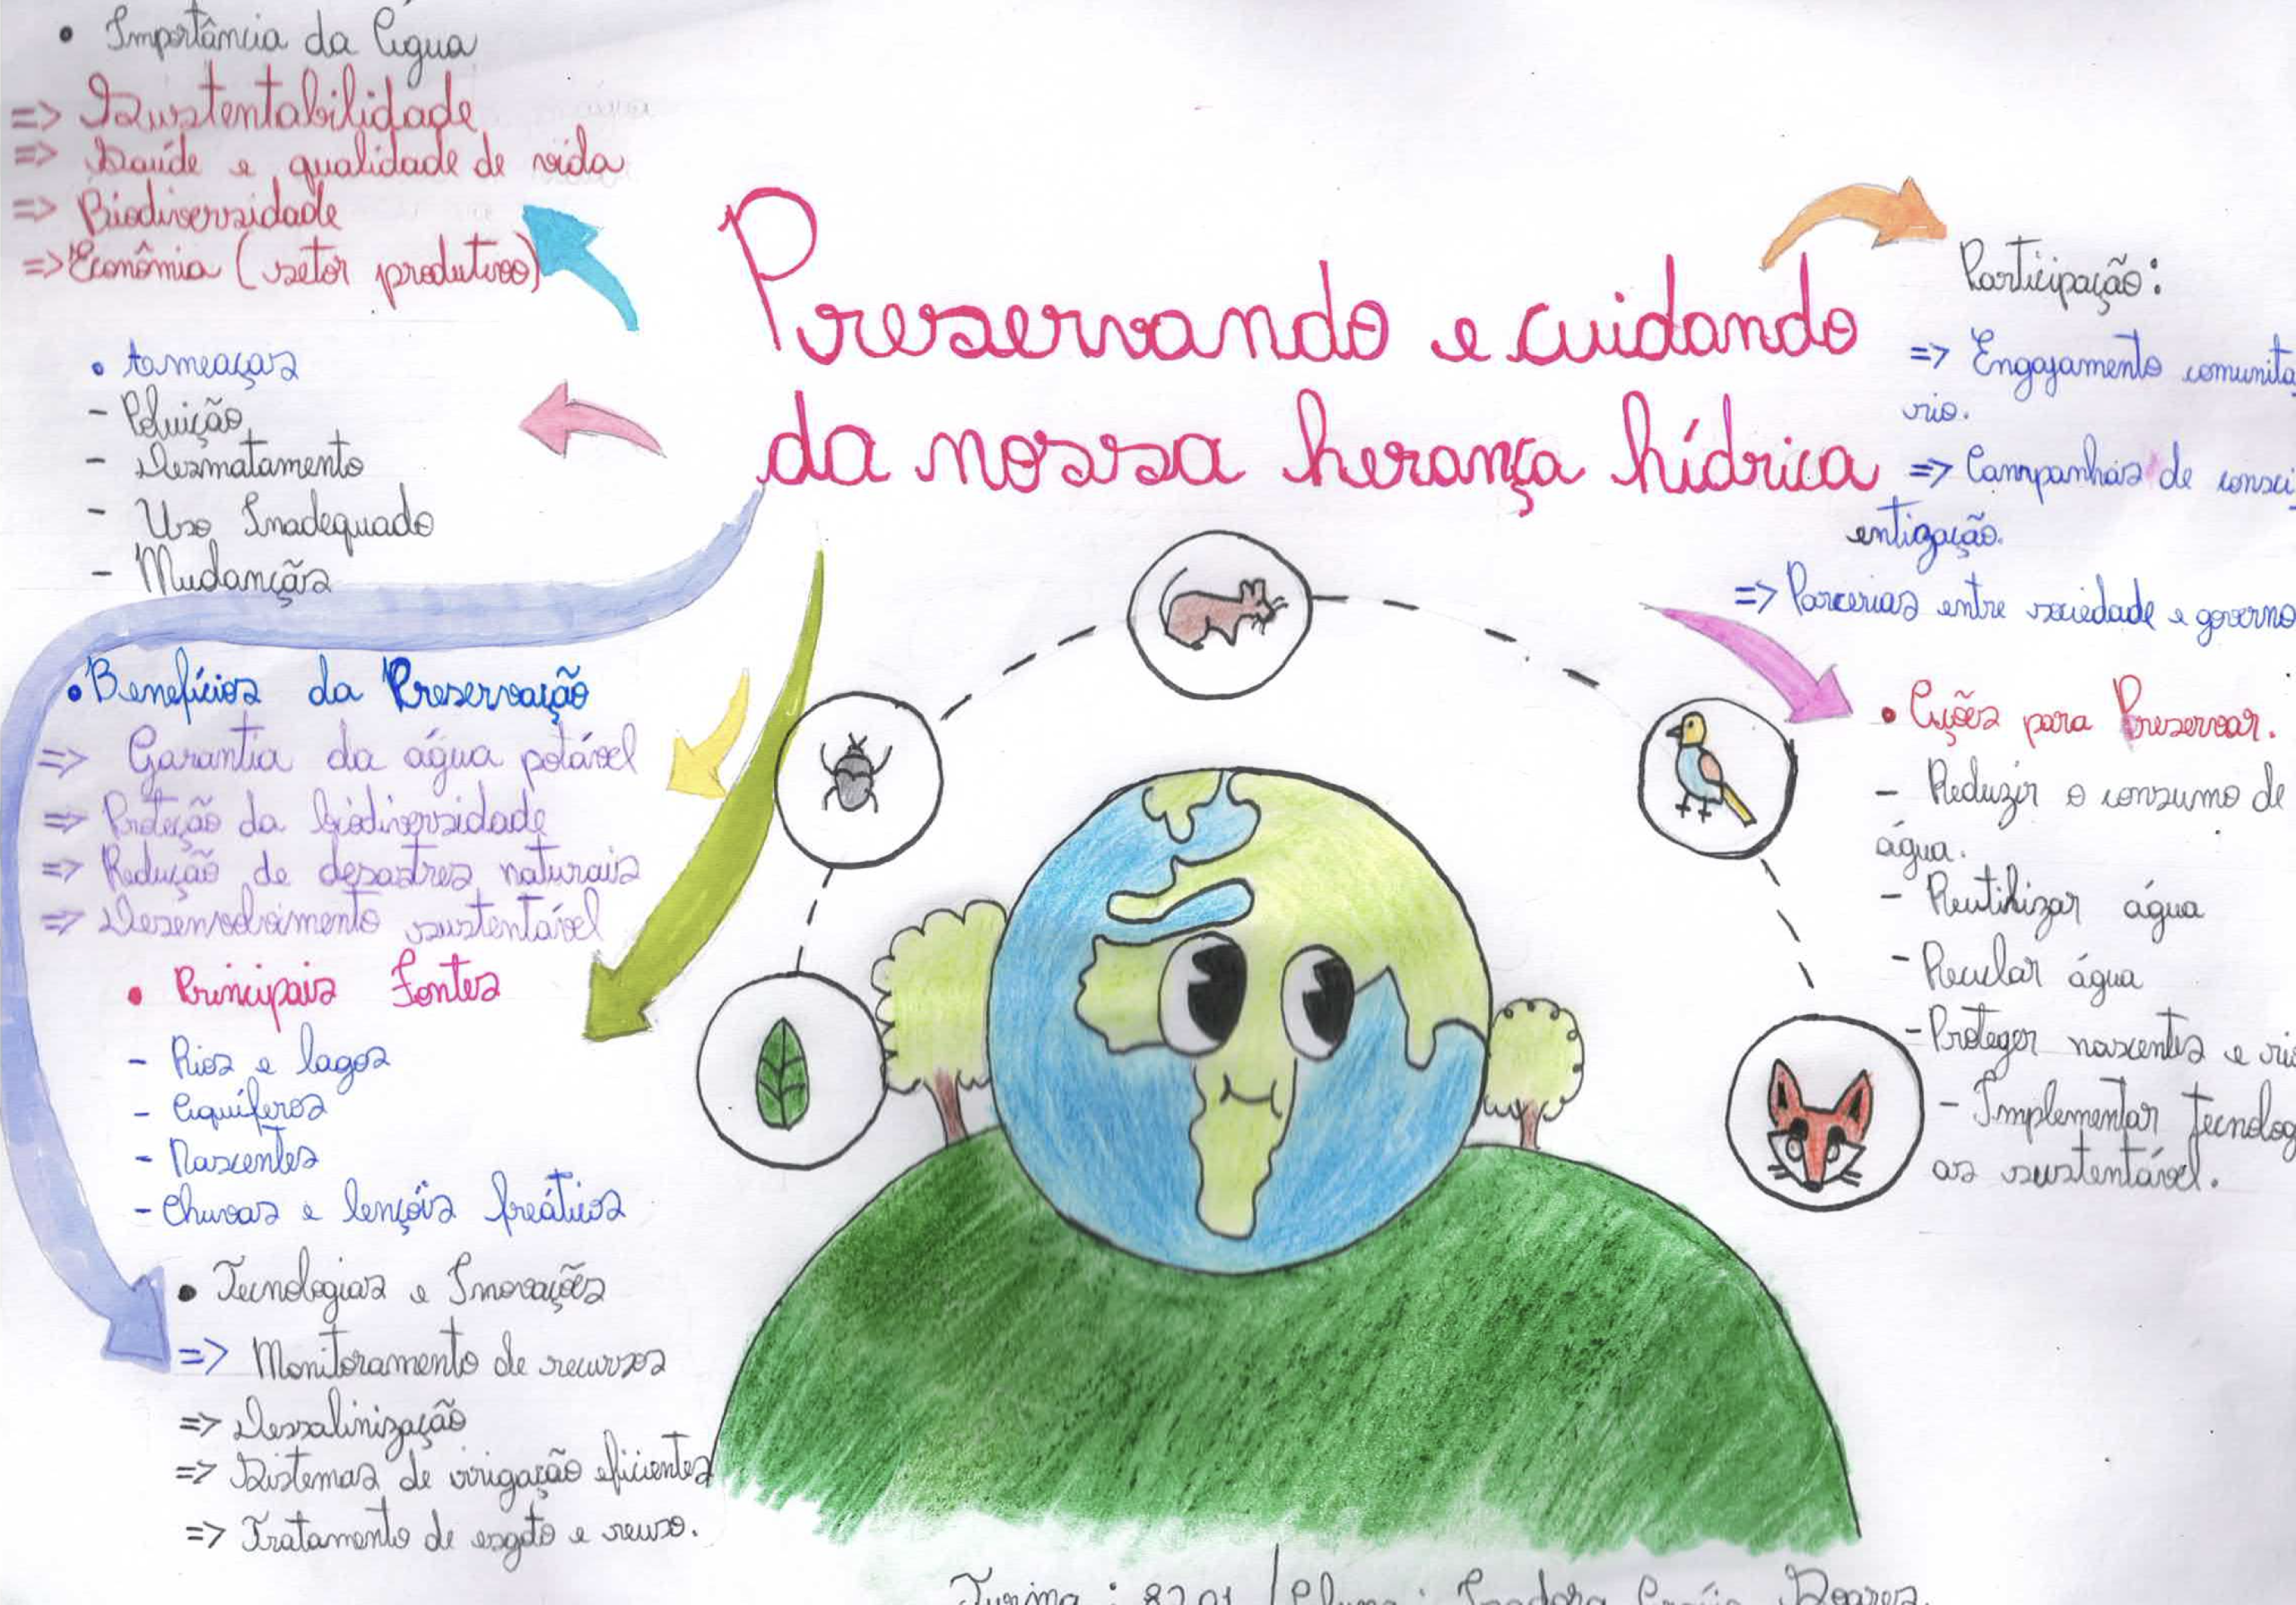 • Importância da Água
=> Sustentabilidade
=> Saúde e qualidade de vida
=> Biodiversidade
=> Econômia (setor produtivo)
• Ameaças
- Poluição
- Desmatamento
- Uso Inadequado
- Mudançãs
• Benefícios da Preservação
=> Garantia da água potável
=> Proteção da biodiversidade
=> Redução de desastres naturais
=> Desenvolvimento sustentável
• Principais Fontes
- Rios e lagos
- Aquíferos
- Nascentes
- Chuvas e lençóis freáticos
• Tecnologias e Inovações
=> Monitoramento de recursos
=> Dessalinização
=> Sistemas de irrigação eficientes
=> Tratamento de esgoto e reuso.
Preservando e cuidando
da nossa herança hídrica
Participação:
=> Engajamento comunitá
rio.
=> Campanhas de consci
entização.
=> Parcerias entre sociedade e governo
• Ações para Preservar.
- Reduzir o consumo de
água.
- Reutilizar água
- Reciclar água
- Proteger nascentes e rio
- Implementar tecnolog
as sustentável.
Turma: 8201 / Aluna: Isadora Soares